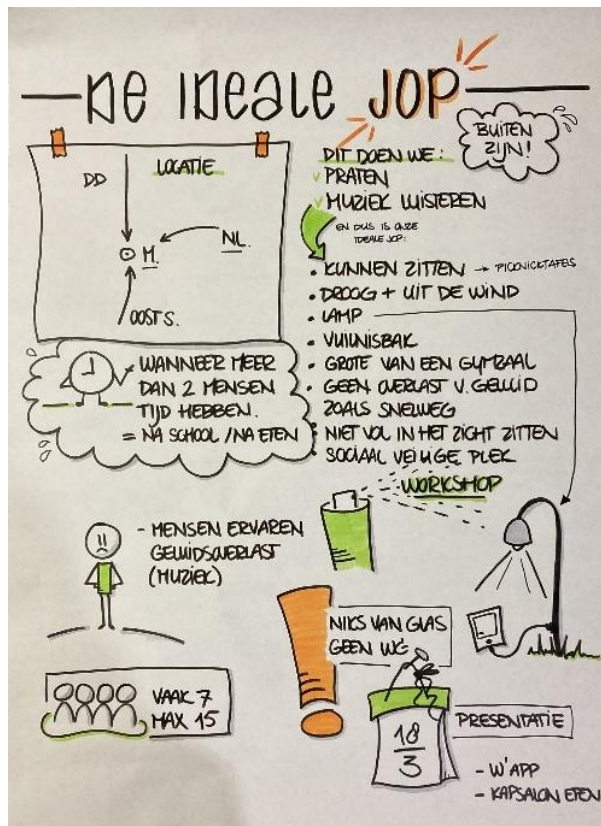 DE IDEALE JOP
BUITEN
ZIJN!
LOCATIE
DD
M.
NL.
OOST S.
DIT DOEN WE:
PRATEN
MUZIEK LUISTEREN
EN DUS IS ONZE
IDEALE JOP:
• KUNNEN ZITTEN → PICKNICKTAFELS
• DROOG + UIT DE WIND
• LAMP
• VUILNISBAK
• GROTE VAN EEN GYMZAAL
• GEEN OVERLAST V. GELUID
ZOALS SNELWEG
• NIET VOL IN HET ZICHT ZITTEN
• SOCIAAL VEILIGE PLEK
WANNEER MEER
DAN 2 MENSEN
TIJD HEBBEN.
= NA SCHOOL / NA ETEN
WORKSHOP
- MENSEN ERVAREN
GELUIDSOVERLAST
(MUZIEK)
NIKS VAN GLAS
GEEN WC
VAAK 7
MAX 15
18
3
PRESENTATIE
- W'APP
- KAPSALON ETEN